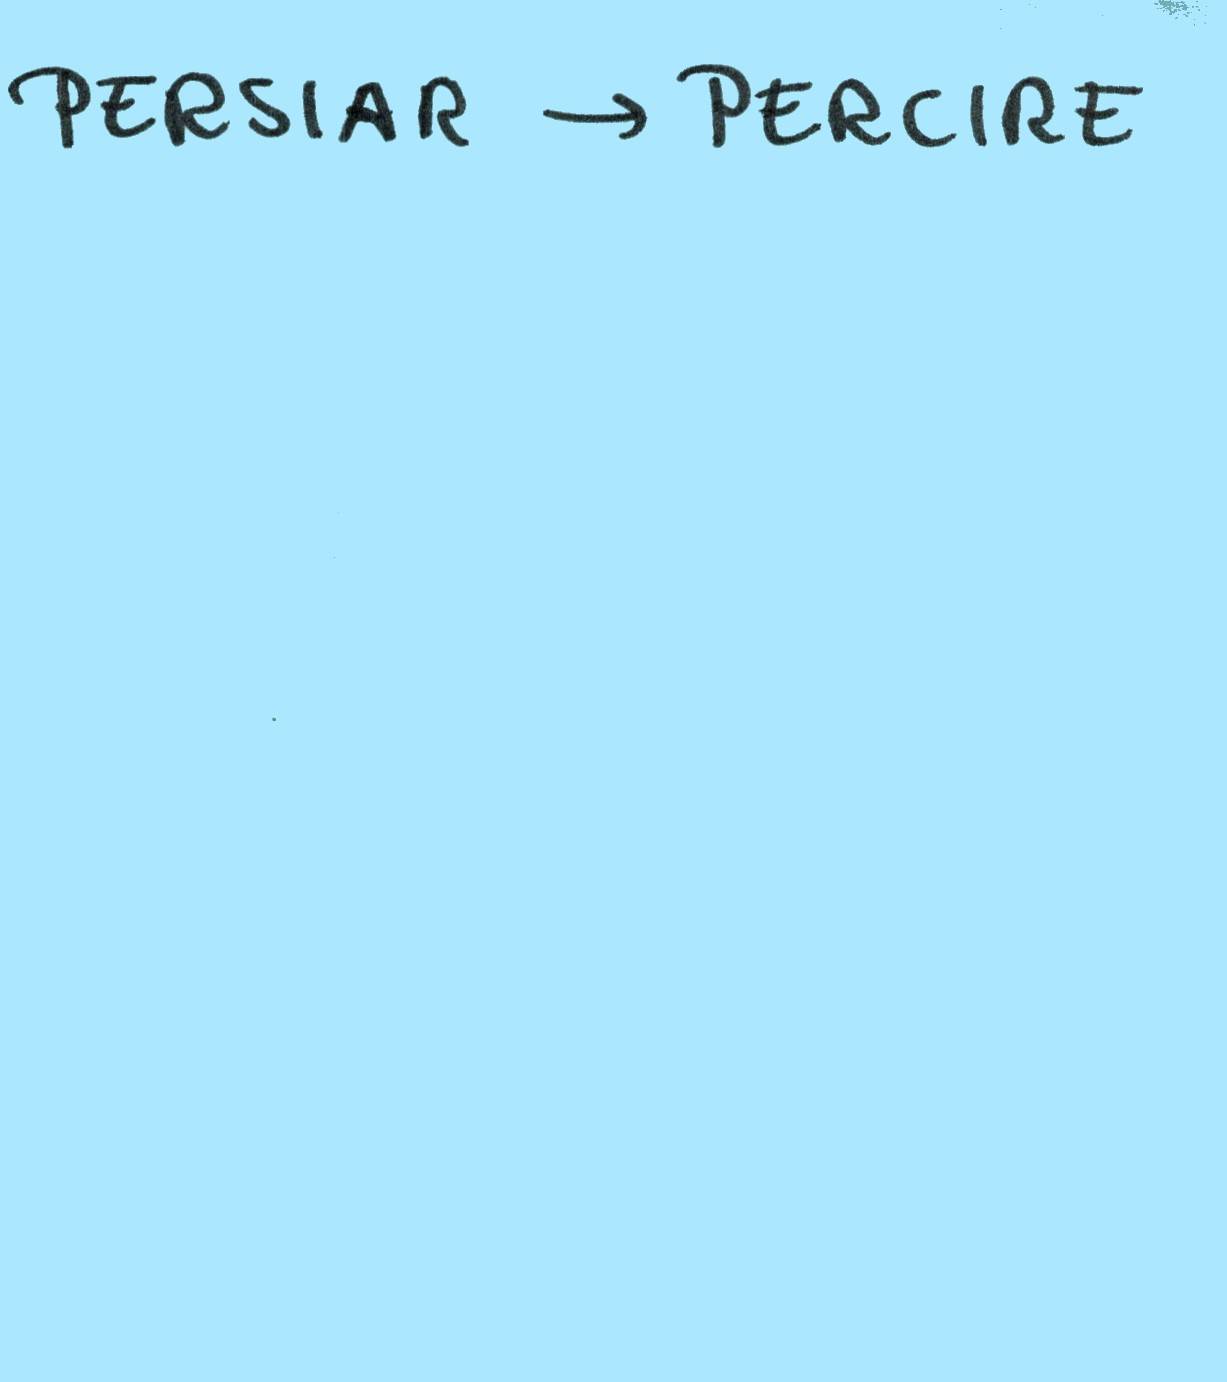 PERSIAR → PERCIRE